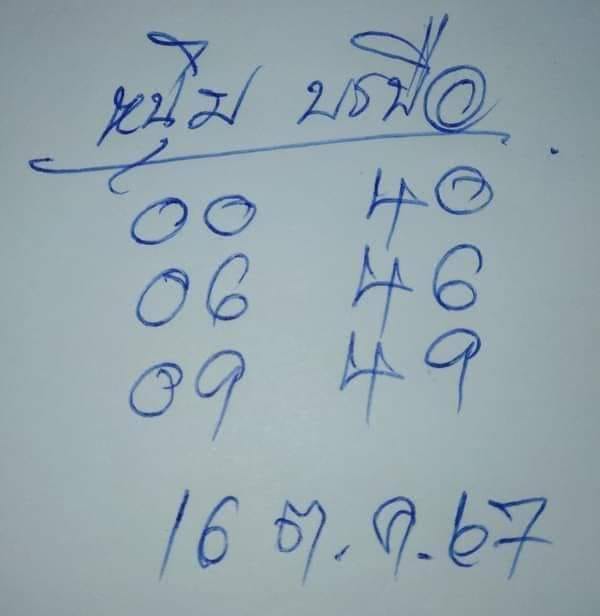 หนุ่ม บรบือ
00 40
06 46
09 49
16 ต.ค.67